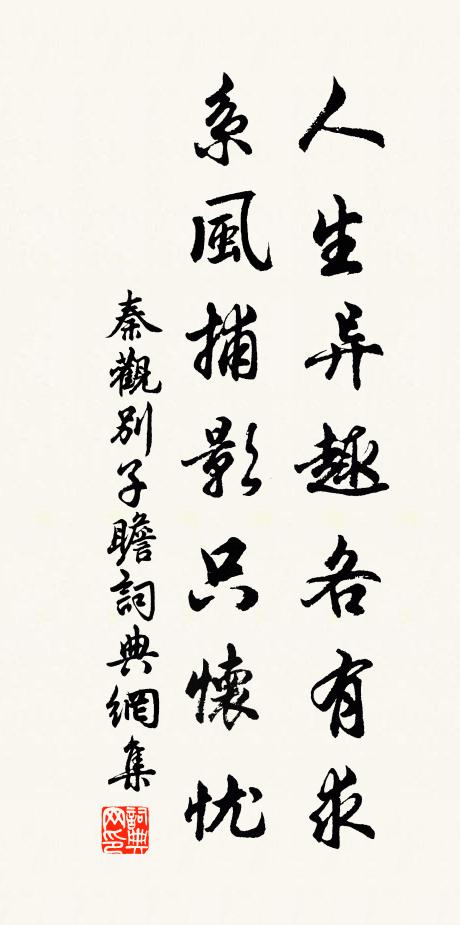 人生异趣各有求
系風捕影只懷忧
秦觀别子瞻詞典網集
詞典網印